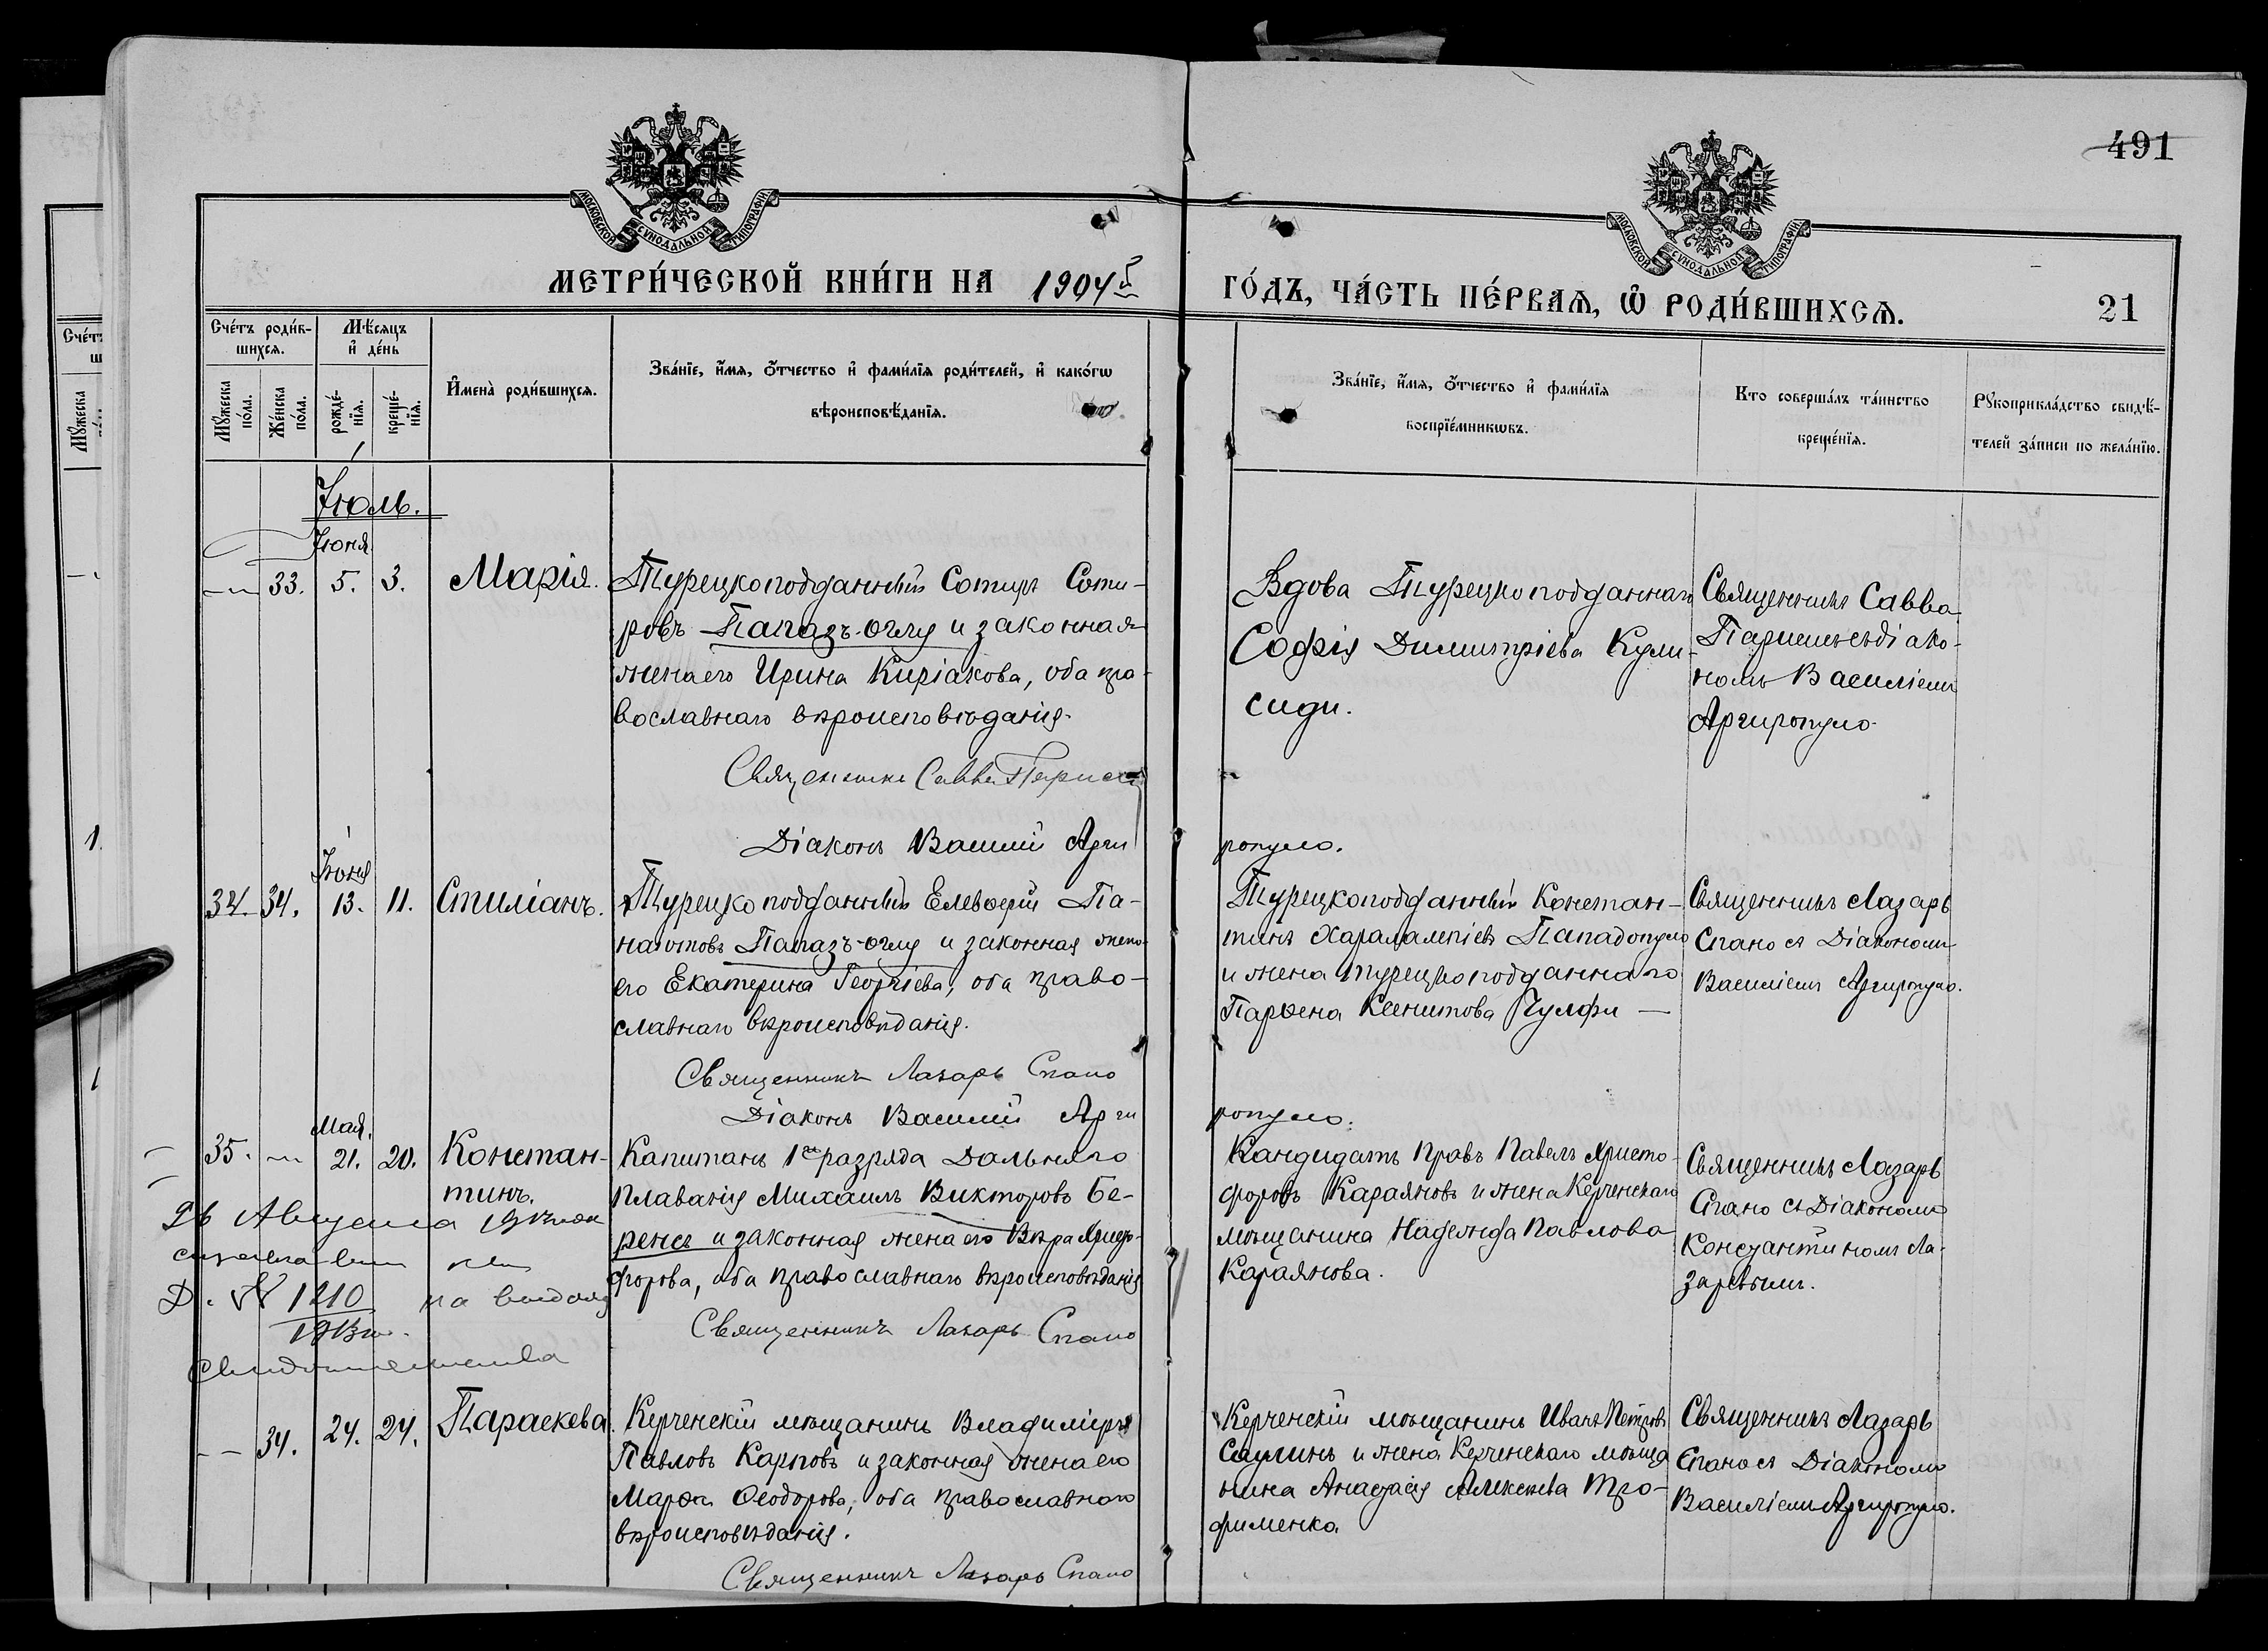 491
МОСКОВСКОЙ СѴНОДАЛЬНОЙ ТИПОГРАФІИ
МОСКОВСКОЙ СѴНОДАЛЬНОЙ ТИПОГРАФІИ
МЕТРИ́ЧЕСКОЙ КНИ́ГИ НА 1904й ГО́ДЪ, ЧА́СТЬ ПЕ́РВАѦ, Ѡ҆ РОДИ́ВШИХСѦ. 21
Сче́тъ роди́в-
шихсѧ.
Мꙋ́жеска по́ла.
Же́нска по́ла.
Мѣ́сѧцъ и҆ де́нь
рожде́-
нїѧ.
креще́-
нїѧ.
И҆мена̀ роди́вшихсѧ.
Зва́нїе, и҆́мѧ, о҆́тчество и҆ фами́лїѧ роди́телей, и҆ како́гѡ
вѣроисповѣ́данїѧ.
Зва́нїе, и҆́мѧ, о҆́тчество и҆ фами́лїѧ
воспрїе́мникѡвъ.
Кто совершáлъ та́инство
креще́нїѧ.
Рꙋкоприкла́дство свидѣ́-
телей за́писи по жела́нїю.
Іюль.
Іюня
33. 5. 3. Марія.
Турецкоподданный Сотиръ Соти-
ровъ Папазъ-оглу и законная
жена его Ирина Киріакова, оба пра-
вославнаго вѣроисповѣданія.
Священникъ Савва
Діаконъ Василій Аргиропуло.
Вдова Турецкоподданнаго
Софія Димитріева Кули-
сиди.
Священникъ Савва
съ діако-
номъ Василіемъ
Аргиропуло
Іюня
34. 34. 13. 11. Стиліанъ.
Турецкоподданный Елевѳерій Па-
наіотовъ Папазъ-оглу и законная жена
его Екатерина Георгіева, оба право-
славнаго вѣроисповѣданія.
Священникъ Лазарь Спано
Діаконъ Василій Аргиропуло.
Турецкоподданный Констан-
тинъ Харалампіевъ Пападопуло
и жена турецкоподданнаго
Парѳена
Священникъ Лазарь
Спано съ Діакономъ
Василіемъ Аргиропуло.
Мая.
35. 21. 20. Констан-
тинъ.
Капитанъ 1го разряда Дальняго
плаванія Михаилъ Викторовъ Бе-
ренсъ и законная жена его Вѣра Христо-
форова, оба православнаго вѣроисповѣданія
Священникъ Лазарь Спано
Кандидатъ правъ Павелъ Христо-
форовъ Караяновъ и жена Керченскаго
мѣщанина Надежда Павлова
Караянова.
Священникъ Лазарь
Спано съ Діакономъ
Константиномъ Ла-
заревымъ.
Августа
Д. № 1210
1913 г.
на выдачу
свидѣтельства
34. 24. 24. Параскева.
Керченскій мѣщанинъ Владиміръ
Павловъ Карповъ и законная жена его
Марѳа Ѳеодорова, оба православнаго
вѣроисповѣданія.
Священникъ Лазарь Спано
Керченскій мѣщанинъ Иванъ Петровъ
и жена Керченскаго мѣща
нина Анастасія Алексѣева Тро-
фименко.
Священникъ Лазарь
Спано съ Діакономъ
Василіемъ Аргиропуло.